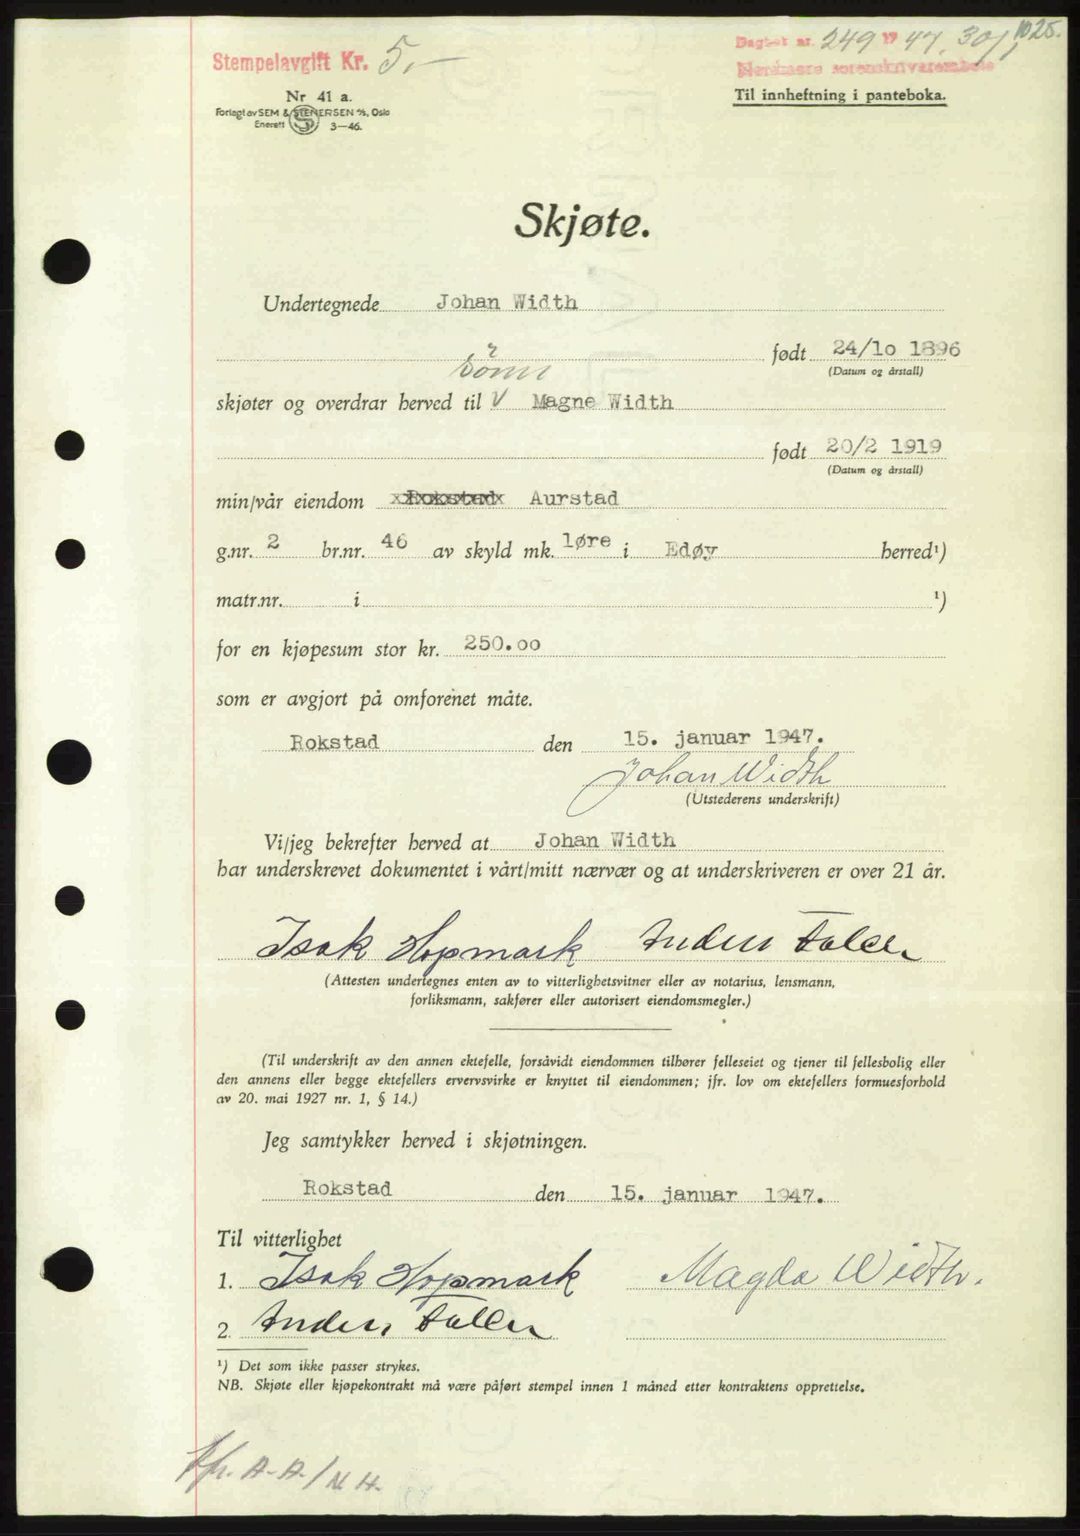 1025.
Stempelavgift Kr. 5.-
Dagbok nr. 249 1947, 30/1
Nordmøre sorenskriverembete
Nr 41 a.
Til innheftning i panteboka.
Forlagt av SEM & STENERSEN A/S, Oslo
Enerett S 3-46.
Skjøte.
Undertegnede Johan Width
født 24/1o 1896
(Datum og årstall)
sönn
skjøter og overdrar herved til V Magne Width
født 20/2 1919
(Datum og årstall)
min/vår eiendom xxRokstadxx Aurstad
g.nr. 2 br.nr. 46 av skyld mk. 1øre i Edøy herred¹)
matr.nr. i ¹)
for en kjøpesum stor kr. 250.oo
som er avgjort på omforenet måte.
Rokstad den 15. januar 1947.
Johan Width
(Utstederens underskrift)
Vi/jeg bekrefter herved at Johan Width
har underskrevet dokumentet i vårt/mitt nærvær og at underskriveren er over 21 år.
Isak Hopmark Anders Faller
(Attesten undertegnes enten av to vitterlighetsvitner eller av notarius, lensmann,
forliksmann, sakfører eller autorisert eiendomsmegler.)
(Til underskrift av den annen ektefelle, forsåvidt eiendommen tilhører felleseiet og tjener til fellesbolig eller
den annens eller begge ektefellers ervervsvirke er knyttet til eiendommen; jfr. lov om ektefellers formuesforhold
av 20. mai 1927 nr. 1, § 14.)
Jeg samtykker herved i skjøtningen.
Rokstad den 15. januar 1947.
Til vitterlighet
1. Isak Hopmark Magda Width.
2. Anders Faller
¹) Det som ikke passer strykes.
NB. Skjøte eller kjøpekontrakt må være påført stempel innen 1 måned etter kontraktens opprettelse.
A.A./N.H.